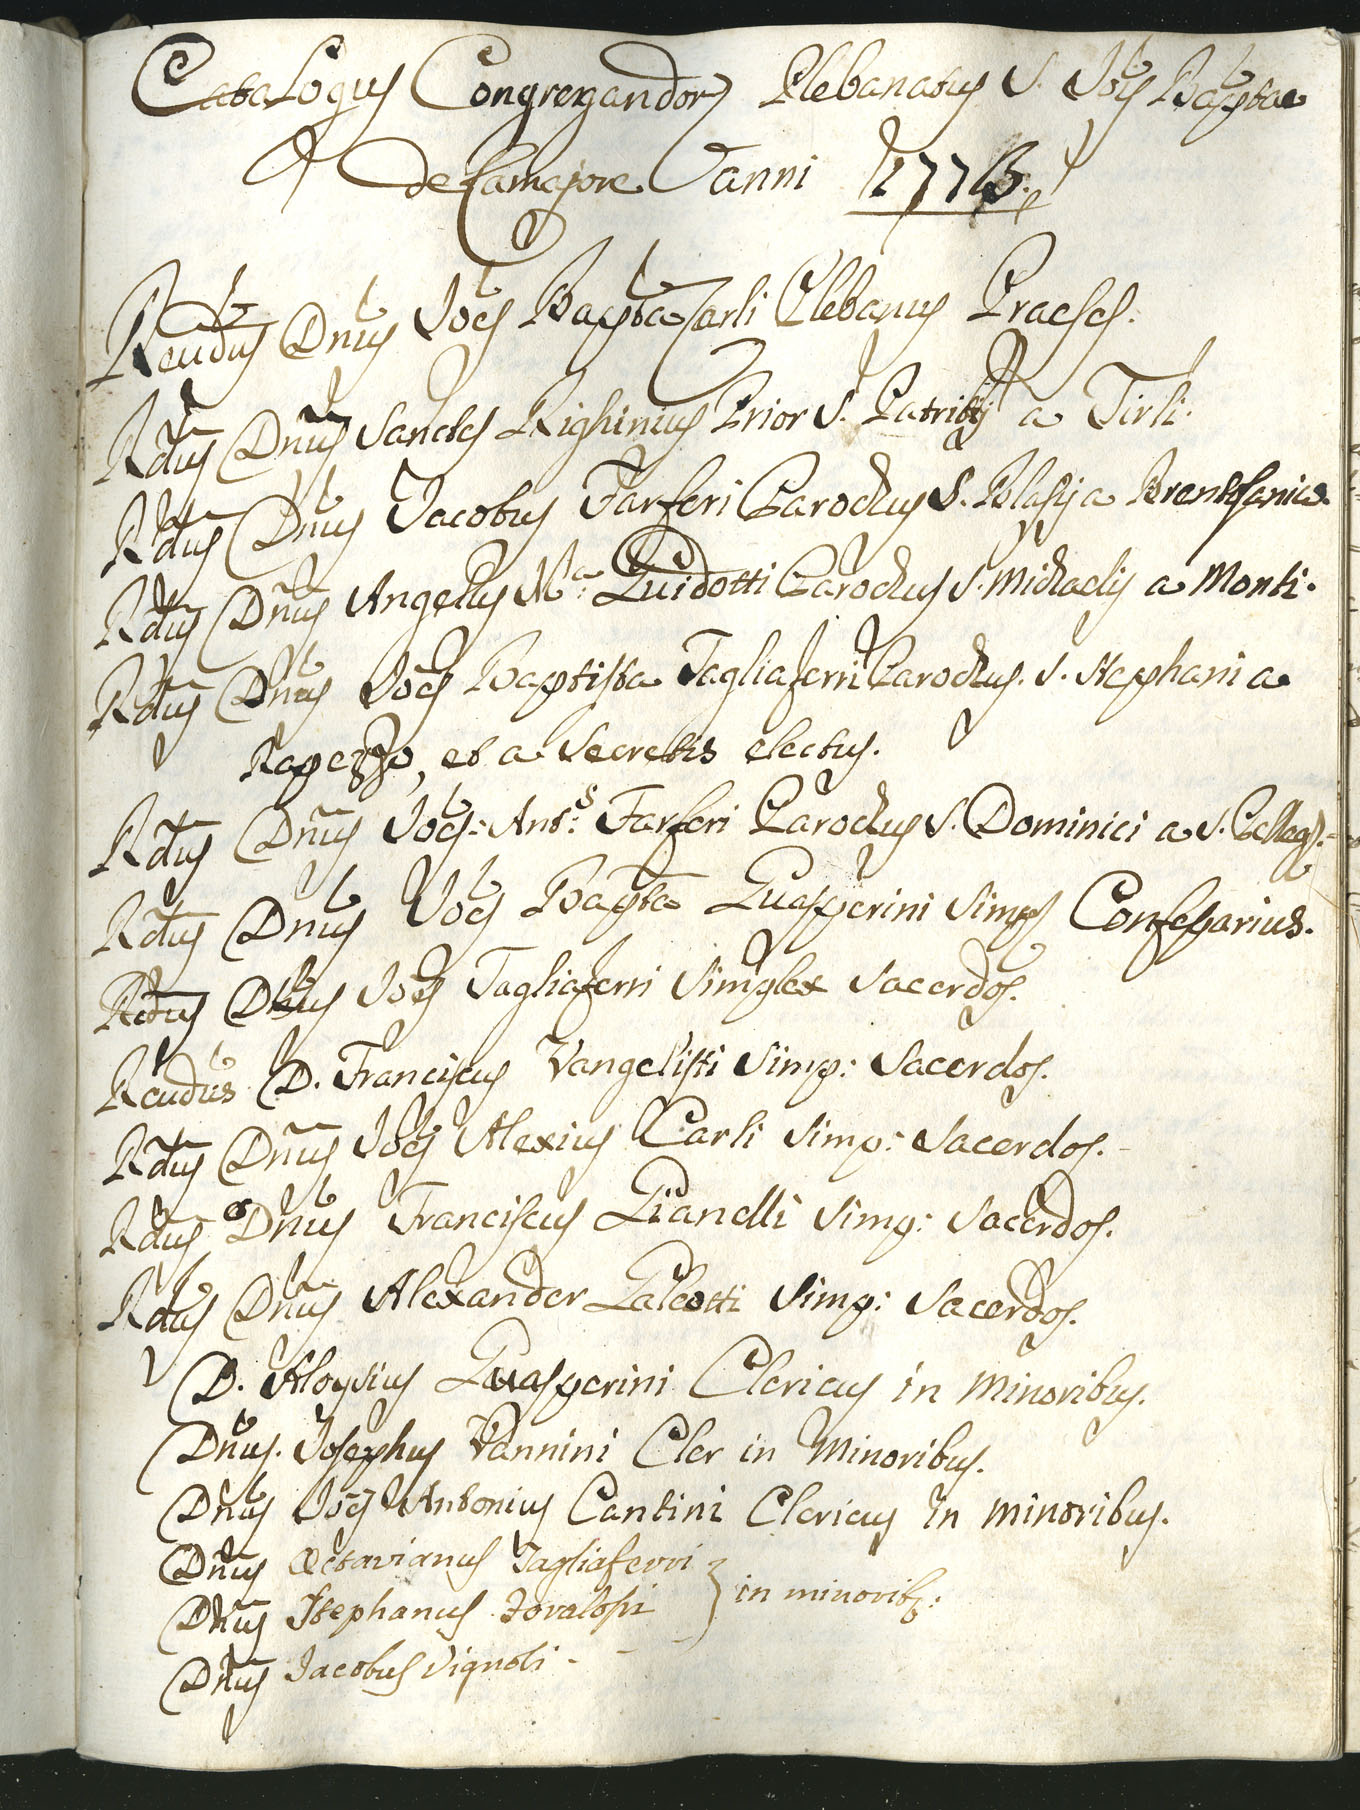 Catalogus Congregandor Plebanatus S. Jois Baptae
de Camajore Vanni 1775.
Reudus Dnus Joes Bapta Carli Plebanus Praeses.
Rdus Dnus Sanctes Righinius Prior S. Patritij a Tirli.
Rdus Dnus Jacobus Farferi Parochus S. Blasij a
Rdus Dnus Angelus Ma: Guidotti Parochus S. Michaelis a Monti.
Rdus Dnus Joes Baptista Tagliaferri Parochus. S. Stephani a
Ragezzo, et a Secretis electus.
Rdus Dnus Joes: Ants: Farferi Parochus S. Dominici a S. Pelleg:
Rdus Dnus Joes Bapta Guasperini Simps Confessarius.
Rdus Dnus Joes Tagliaferri Simplex Sacerdos.
Reudus D. Franciscus Vangelisti Simp: Sacerdos.
Rdus Dnus Joes Alexius Carli Simp: Sacerdos.
Rdus Dnus Franciscus Gianelli Simp: Sacerdos.
Rdus Dnus Alexander Galeotti Simp: Sacerdos.
D. Aloysius Guasperini Clericus in Minoribus.
Dnus. Josephus Vannini Cler in Minoribus.
Dnus Joes Antonius Cantini Clericus in minoribus.
Dnus Octavianus Tagliaferri
Dnus Stephanus } in minorib:
Dnus Jacobus Vignoli - - -